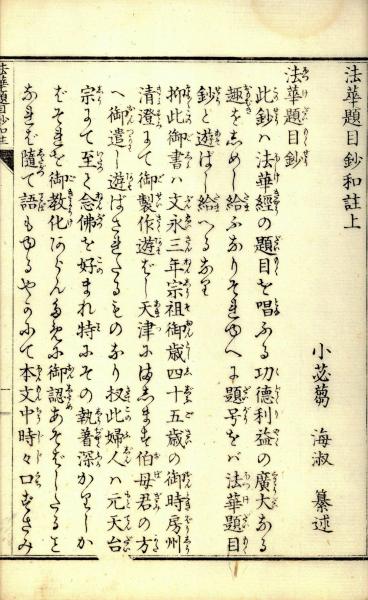 法華題目鈔和註上
小苾蒭 海淑 纂述
法華題目鈔
此鈔ハ法華經の題目を唱ふる功德利益の廣大なる
趣をしめし給ふなりそれゆへに題号をバ法華題目
鈔と遊ばし給へるなり
抑此御書ハ文永三年宗祖御歳四十五歳の御時房州
清澄にて御製作遊ばし天津にまします伯母君の方
へ御遣し遊ばされたるものなり扨此婦人ハ元天台
宗にて至と念佛を好まれ特にその執着深かりしか
ばそれを御教化あらんために御認あそばしたると
なれば隨て語もゆるやかにて本文中時々口ずさみ
法華題目鈔和註上
一